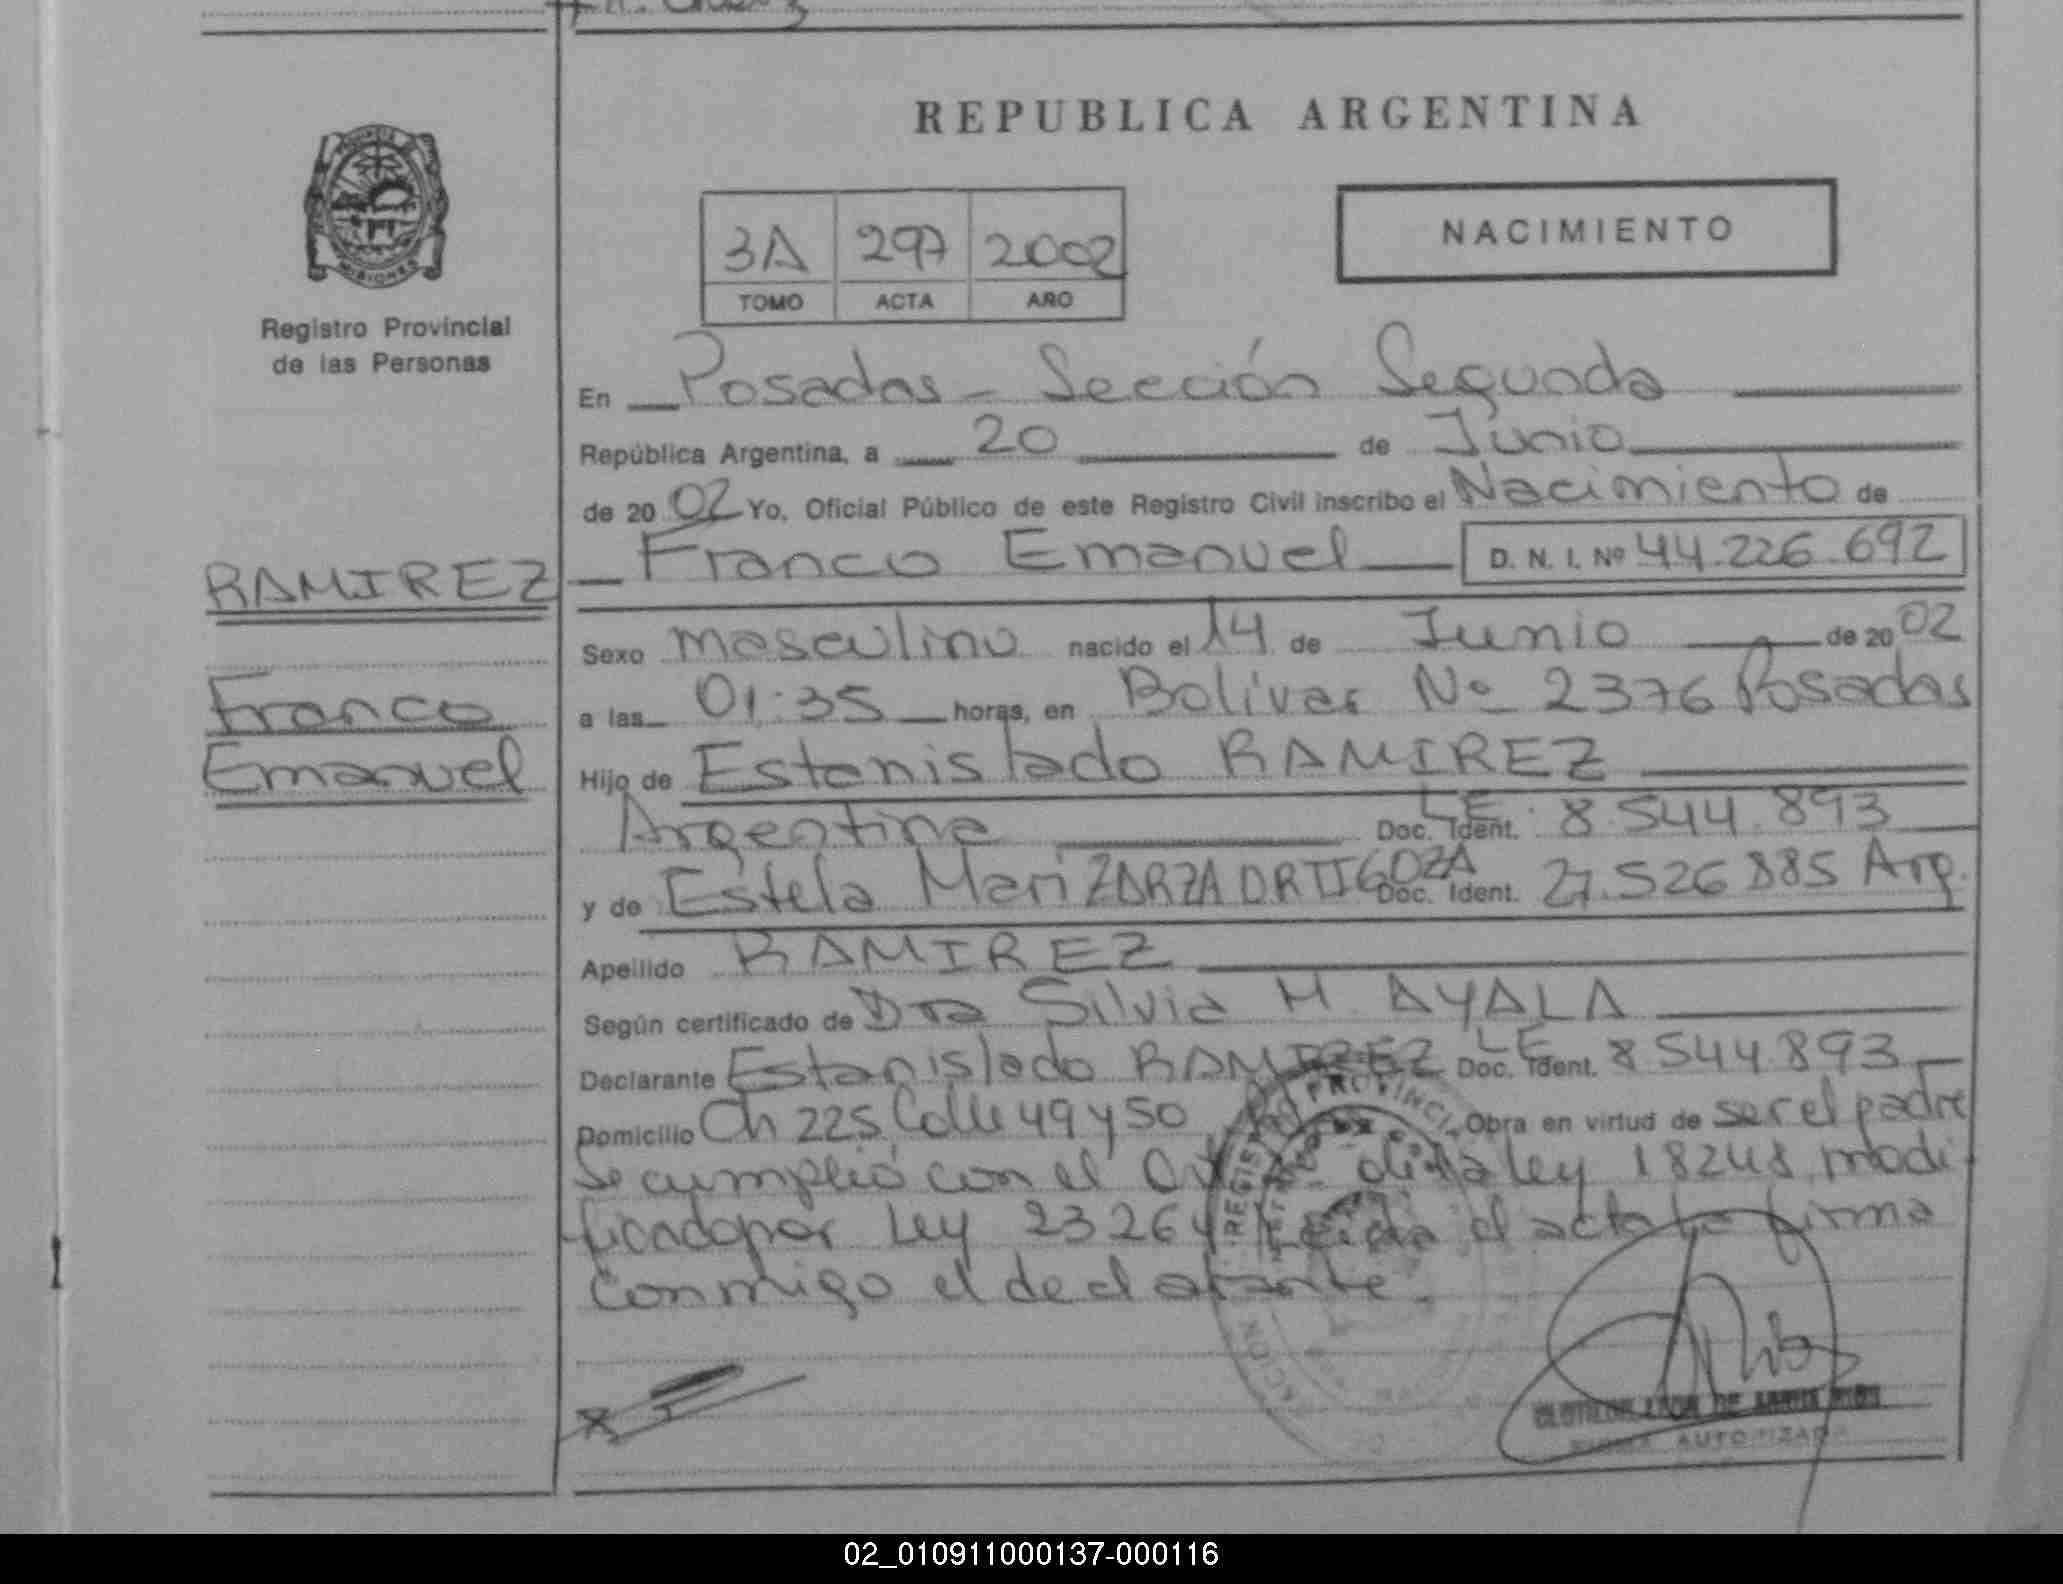 REPUBLICA ARGENTINA
PROVINCIA DE MISIONES
Registro Provincial
de las Personas
3A 297 2002
TOMO ACTA AÑO
NACIMIENTO
En Posadas - Sección Segunda
República Argentina, a 20 de Junio
de 2002 Yo, Oficial Público de este Registro Civil inscribo el Nacimiento de
RAMIREZ
Franco Emanuel D. N. I. Nº 44.226.692
Sexo masculino nacido el 14 de Junio de 2002
Franco
a las 01:35 horas, en Bolivar Nº 2376 Posadas
Emanuel
Hijo de Estanislado RAMIREZ
Argentina Doc. Ident. LE 8.544.893
y de Estela Mari ZARZA ORTIGOZA Doc. Ident. 27.526 885 Arg.
Apellido RAMIREZ
Según certificado de Dra Silvia M. AYALA
Declarante Estanislado RAMIREZ Doc. Ident. LE 8544.893
Domicilio Ch 225 Calle 49 y 50 Obra en virtud de ser el padre
Se cumplió con el de la ley 18248 modi
ficado por Ley 23264 Leida el acta la firma
conmigo el declarante.
REGISTRO PROVINCIAL
FIRMA AUTORIZADA
02_010911000137-000116